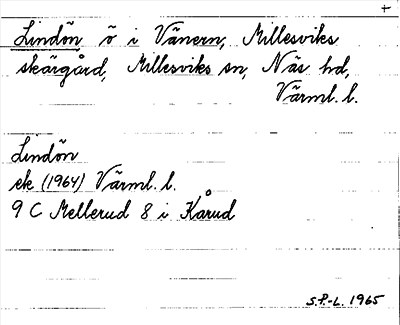 +
Lindön ö i Vänern, Millesviks
skärgård, Millesviks sn, Näs hd,
Värml. l.
Lindön
ek (1964) Värml. l.
9 C Mellerud 8 i Kårud
S.P.-L. 1965